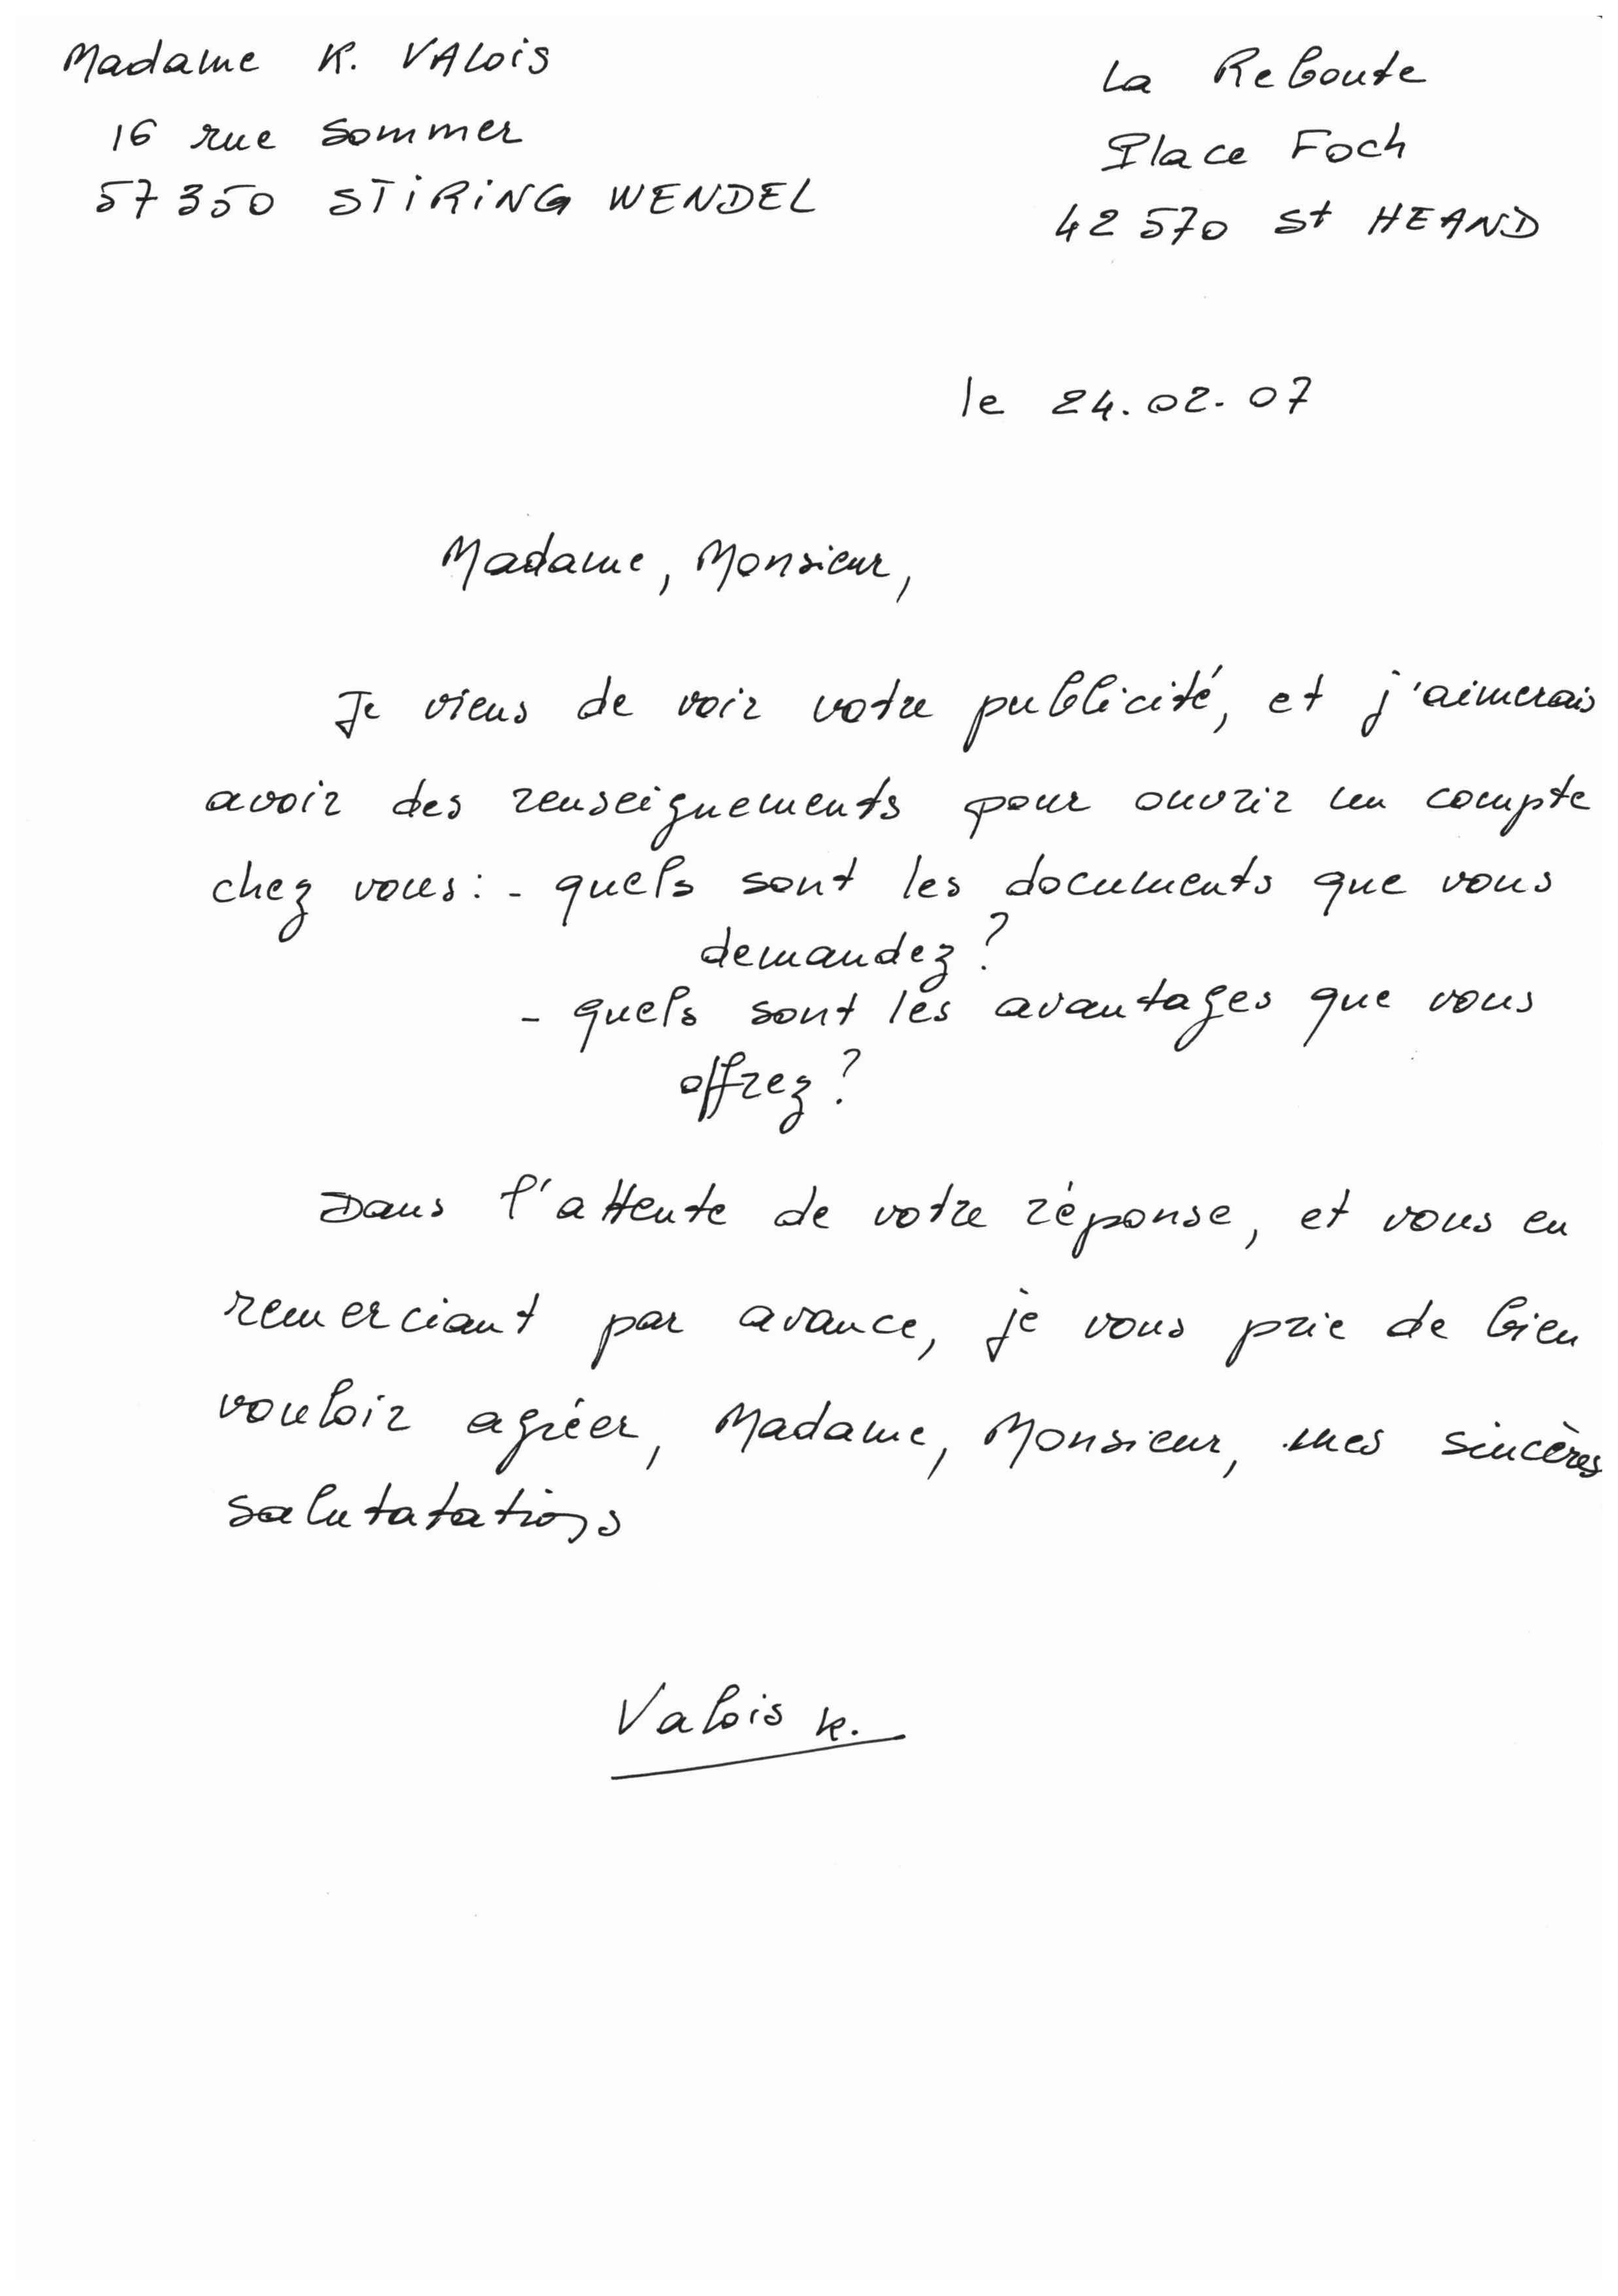 Madame K. VALois
16 rue Sommer
57 350 STiRiNG WENDEL
La Reboute
Place Foch
42 570 St HEAND
le 24.02.07
Madame, Monsieur,
Je viens de voir votre publicité, et j'aimerais
avoir des renseignements pour ouvrir un compte
chez vous : - quels sont les documents que vous
demandez ?
- quels sont les avantages que vous
offrez ?
Dans l'attente de votre réponse, et vous en
remerciant par avance, je vous prie de bien
vouloir agréer, Madame, Monsieur, mes sincères
salutatations
Valois k.